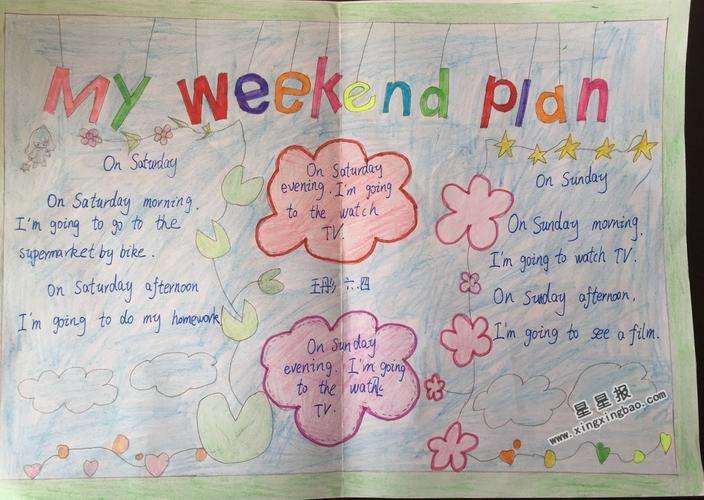 My weekend plan
On Saturday
On Saturday morning.
I'm going to go to the
supermarket by bike.
On Saturday afternoon
I'm going to do my homework
On Saturday
evening. I'm going
to the watch
TV.
六.四
On Sunday
evening. I'm going
to the watch
TV.
On Sunday
On Sunday morning.
I'm going to watch TV.
On Sunday afternoon.
I'm going to see a film.
星星报
www.xingxingbao.com